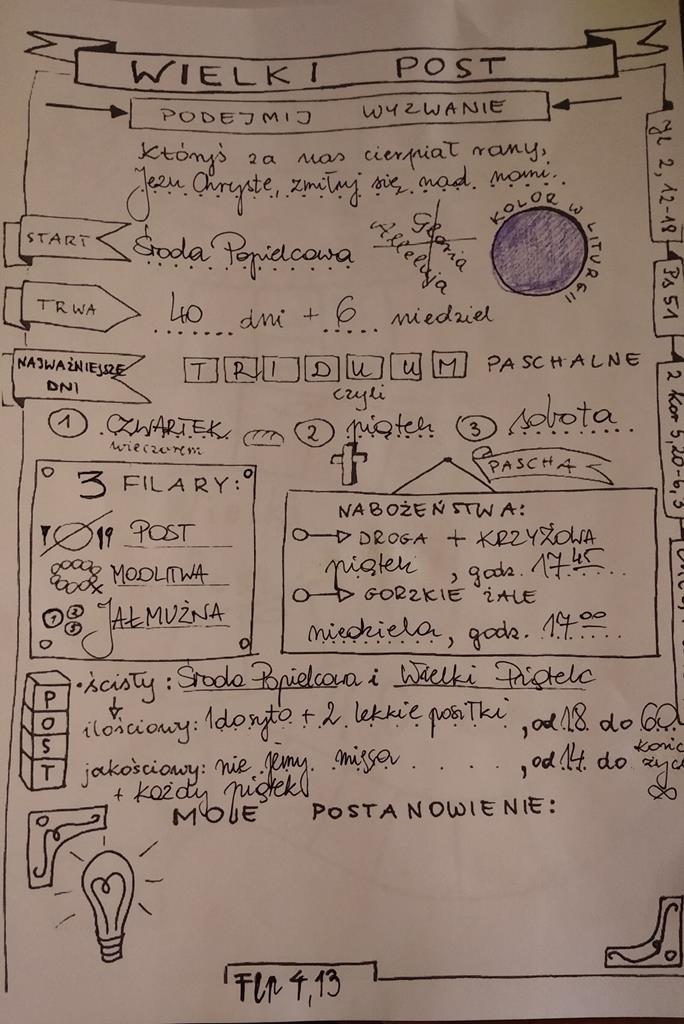 WIELKI POST
PODEJMIJ WYZWANIE
Któryś za nas cierpiał rany,
Jezu Chryste, zmiłuj się nad nami.
START Środa Popielcowa
Gloria
Alleluja
KOLOR W LITURGII
TRWA 40 dni + 6 niedziel
NAJWAŻNIEJSZE DNI
TRIDUUM PASCHALNE
czyli
1 CZWARTEK 2 piątek 3 sobota
wieczorem
PASCHA
3 FILARY:
POST
MODLITWA
JAŁMUŻNA
NABOŻEŃSTWA:
DROGA + KRZYŻOWA
piątek, godz. 17 45
GORZKIE ŻALE
niedziela, godz. 17 00
POST
• ścisły: Środa Popielcowa i Wielki Piątek
ilościowy: 1 do syta + 2 lekkie posiłki, od 18 do 60
jakościowy: nie jemy mięsa, od 14 do końc życ
+ każdy piątek
∞
MOJE POSTANOWIENIE:
Flp 4,13
Jl 2, 12-18
Ps 51
2 Kor 5,20-6,3